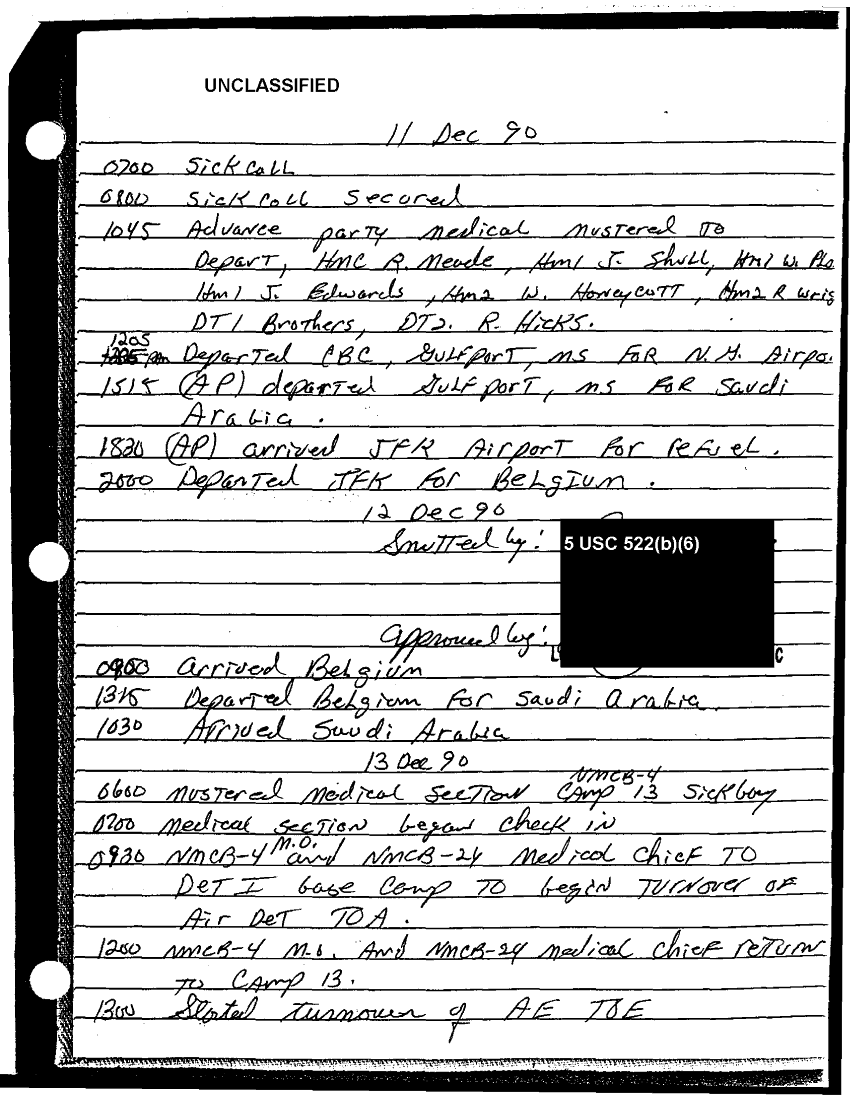 UNCLASSIFIED
11 Dec 90
0700 Sick call
0800 Sick call Secured
1045 Advance party medical mustered to
Depart, HMC R. Meade, HM1 J. Shull, HM1 W.
HM1 J. Edwards, HM2 W. Honeycutt, HM2 R
DT1 Brothers, DT2. R. Hicks.
1205
Departed CBC, Gulfport, MS FOR Airpo.
1515 (AP) departed Gulfport, MS FOR Saudi
Arabia.
1820 (AP) arrived JFK Airport for refuel.
2000 Departed JFK for Belgium.
12 Dec 90
by:
5 USC 522(b)(6)
Approved by:
C
0900 arrived Belgium
1315 Departed Belgium for Saudi arabia.
1030 Arrived Saudi Arabia
13 Dec 90
NMCB-4
0600 mustered medical section Camp 13 Sickbay
0700 medical section began check in
M.O.
0930 NMCB-4 and NMCB-24 medical Chief TO
Det I base Camp TO begin TURNOVER OF
Air Det TOA.
1200 NMCB-4 M.O. And NMCB-24 medical chief return
to CAmp 13.
1300 Started turnover of AE TOE